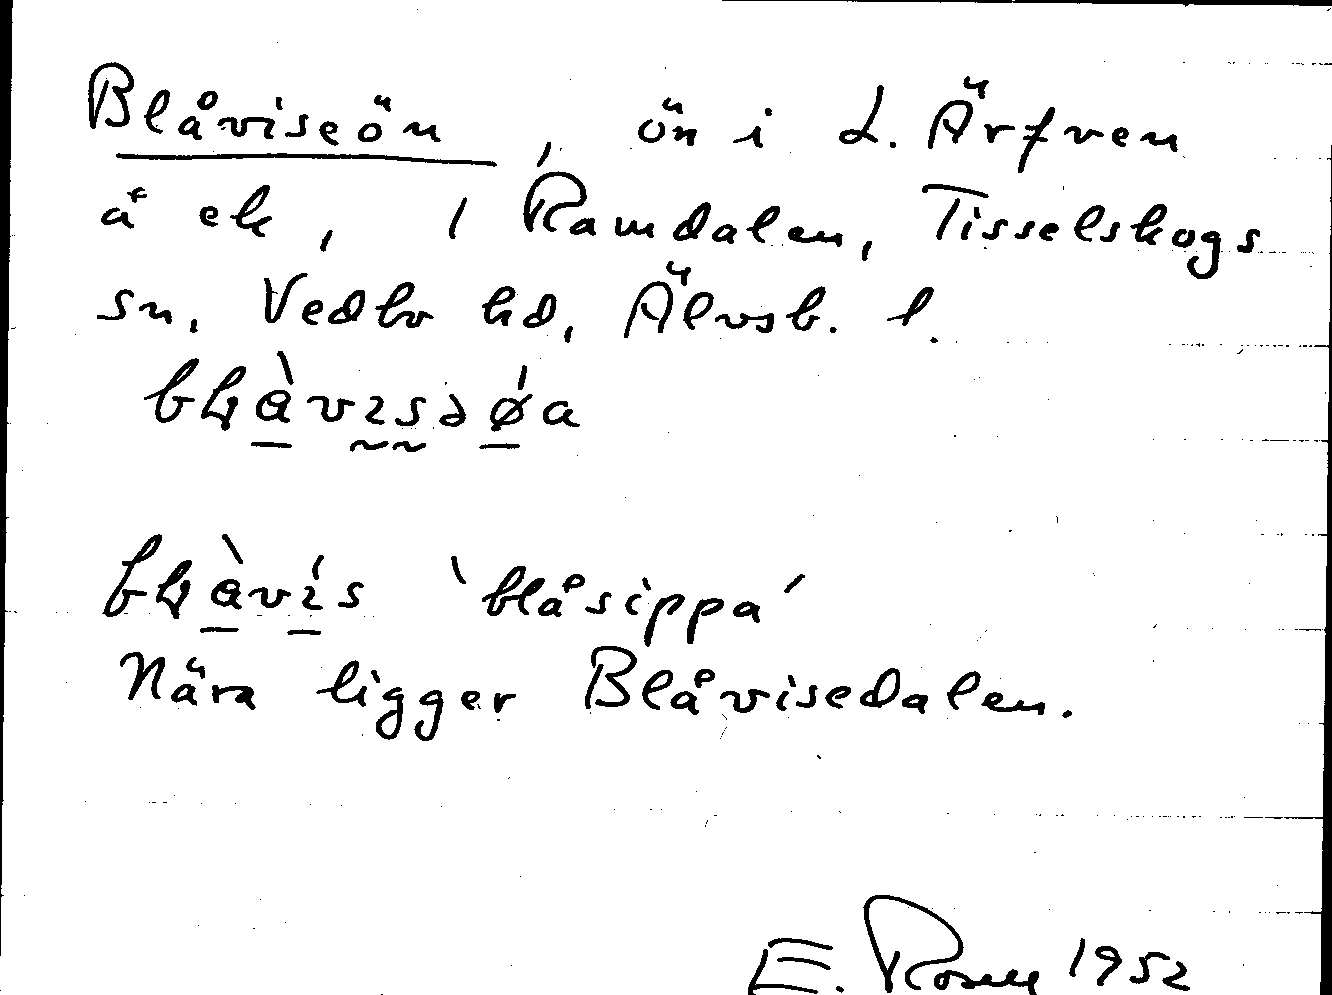 Blåviseön, ön i L. Ärfven
å ek, 1 Ramdalen, Tisselskogs
sn, Vedbo hd, Älvsb. l.
bɫàvɪsəǿa
bɫàvɪ́s 'blåsippa'
Nära ligger Blåvisedalen.
E. Rosell 1952